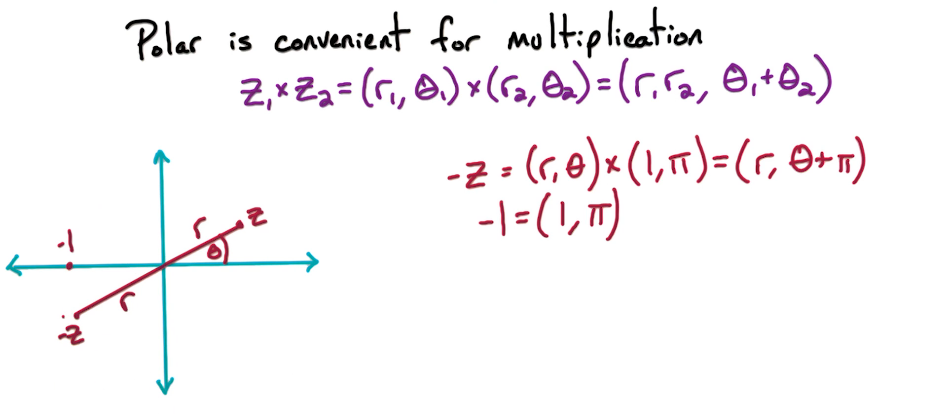 Polar is convenient for multiplication
z₁×z₂=(r₁,θ₁)×(r₂,θ₂)=(r₁r₂, θ₁+θ₂)
-z=(r,θ)×(1,π)=(r, θ+π)
-1=(1,π)
r
z
θ
-1
r
-z